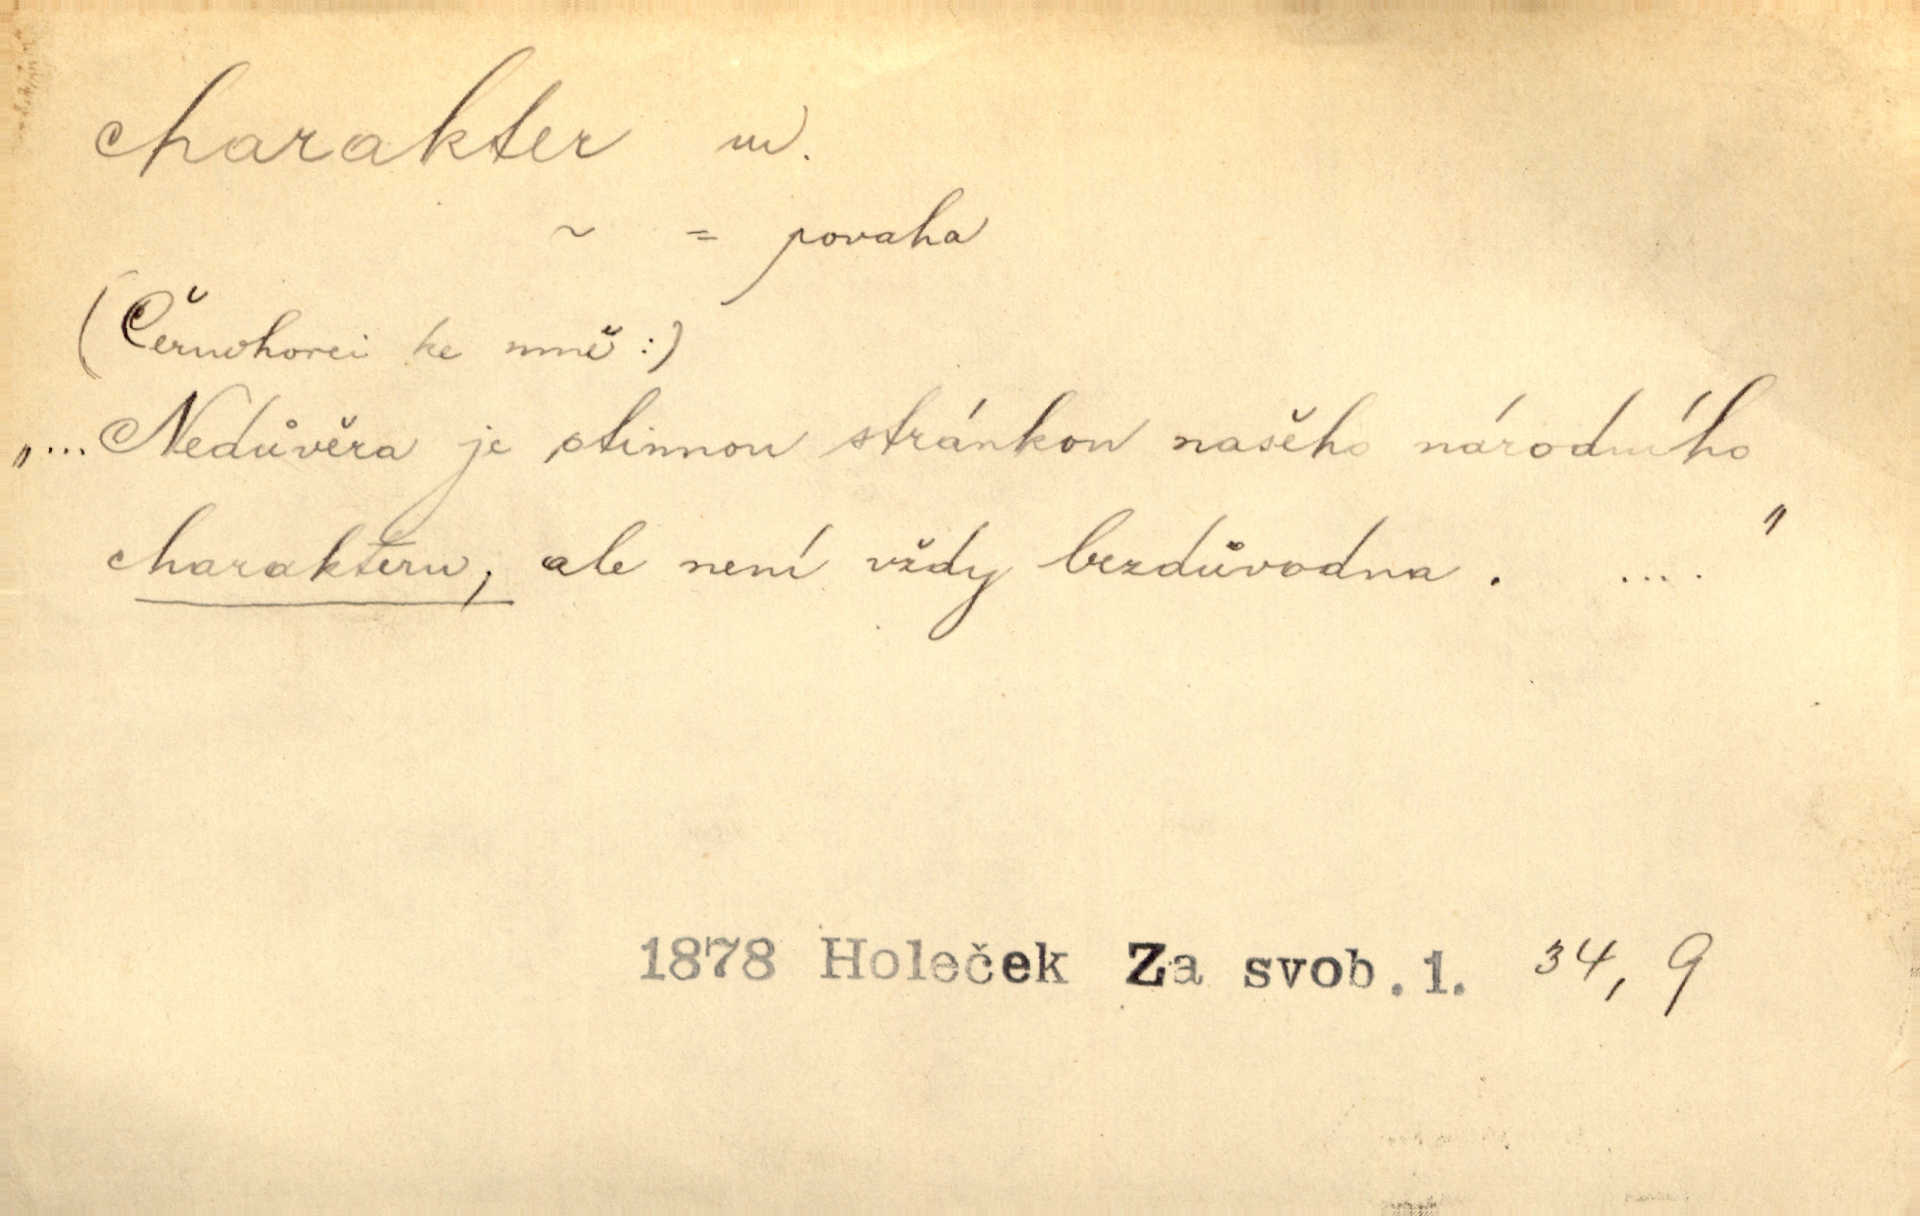 charakter m.
~ = povaha
(Černohorci ke mně:)
„... Nedůvěra je stinnou stránkou našeho národního
charakteru, ale není vždy bezdůvodna. ...."
1878 Holeček Za svob.1. 34, 9